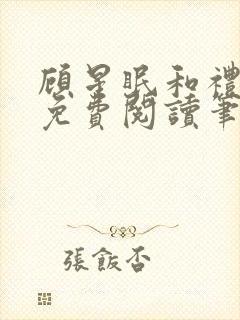 顧星眠和禮
免費閱讀筆
張飯否